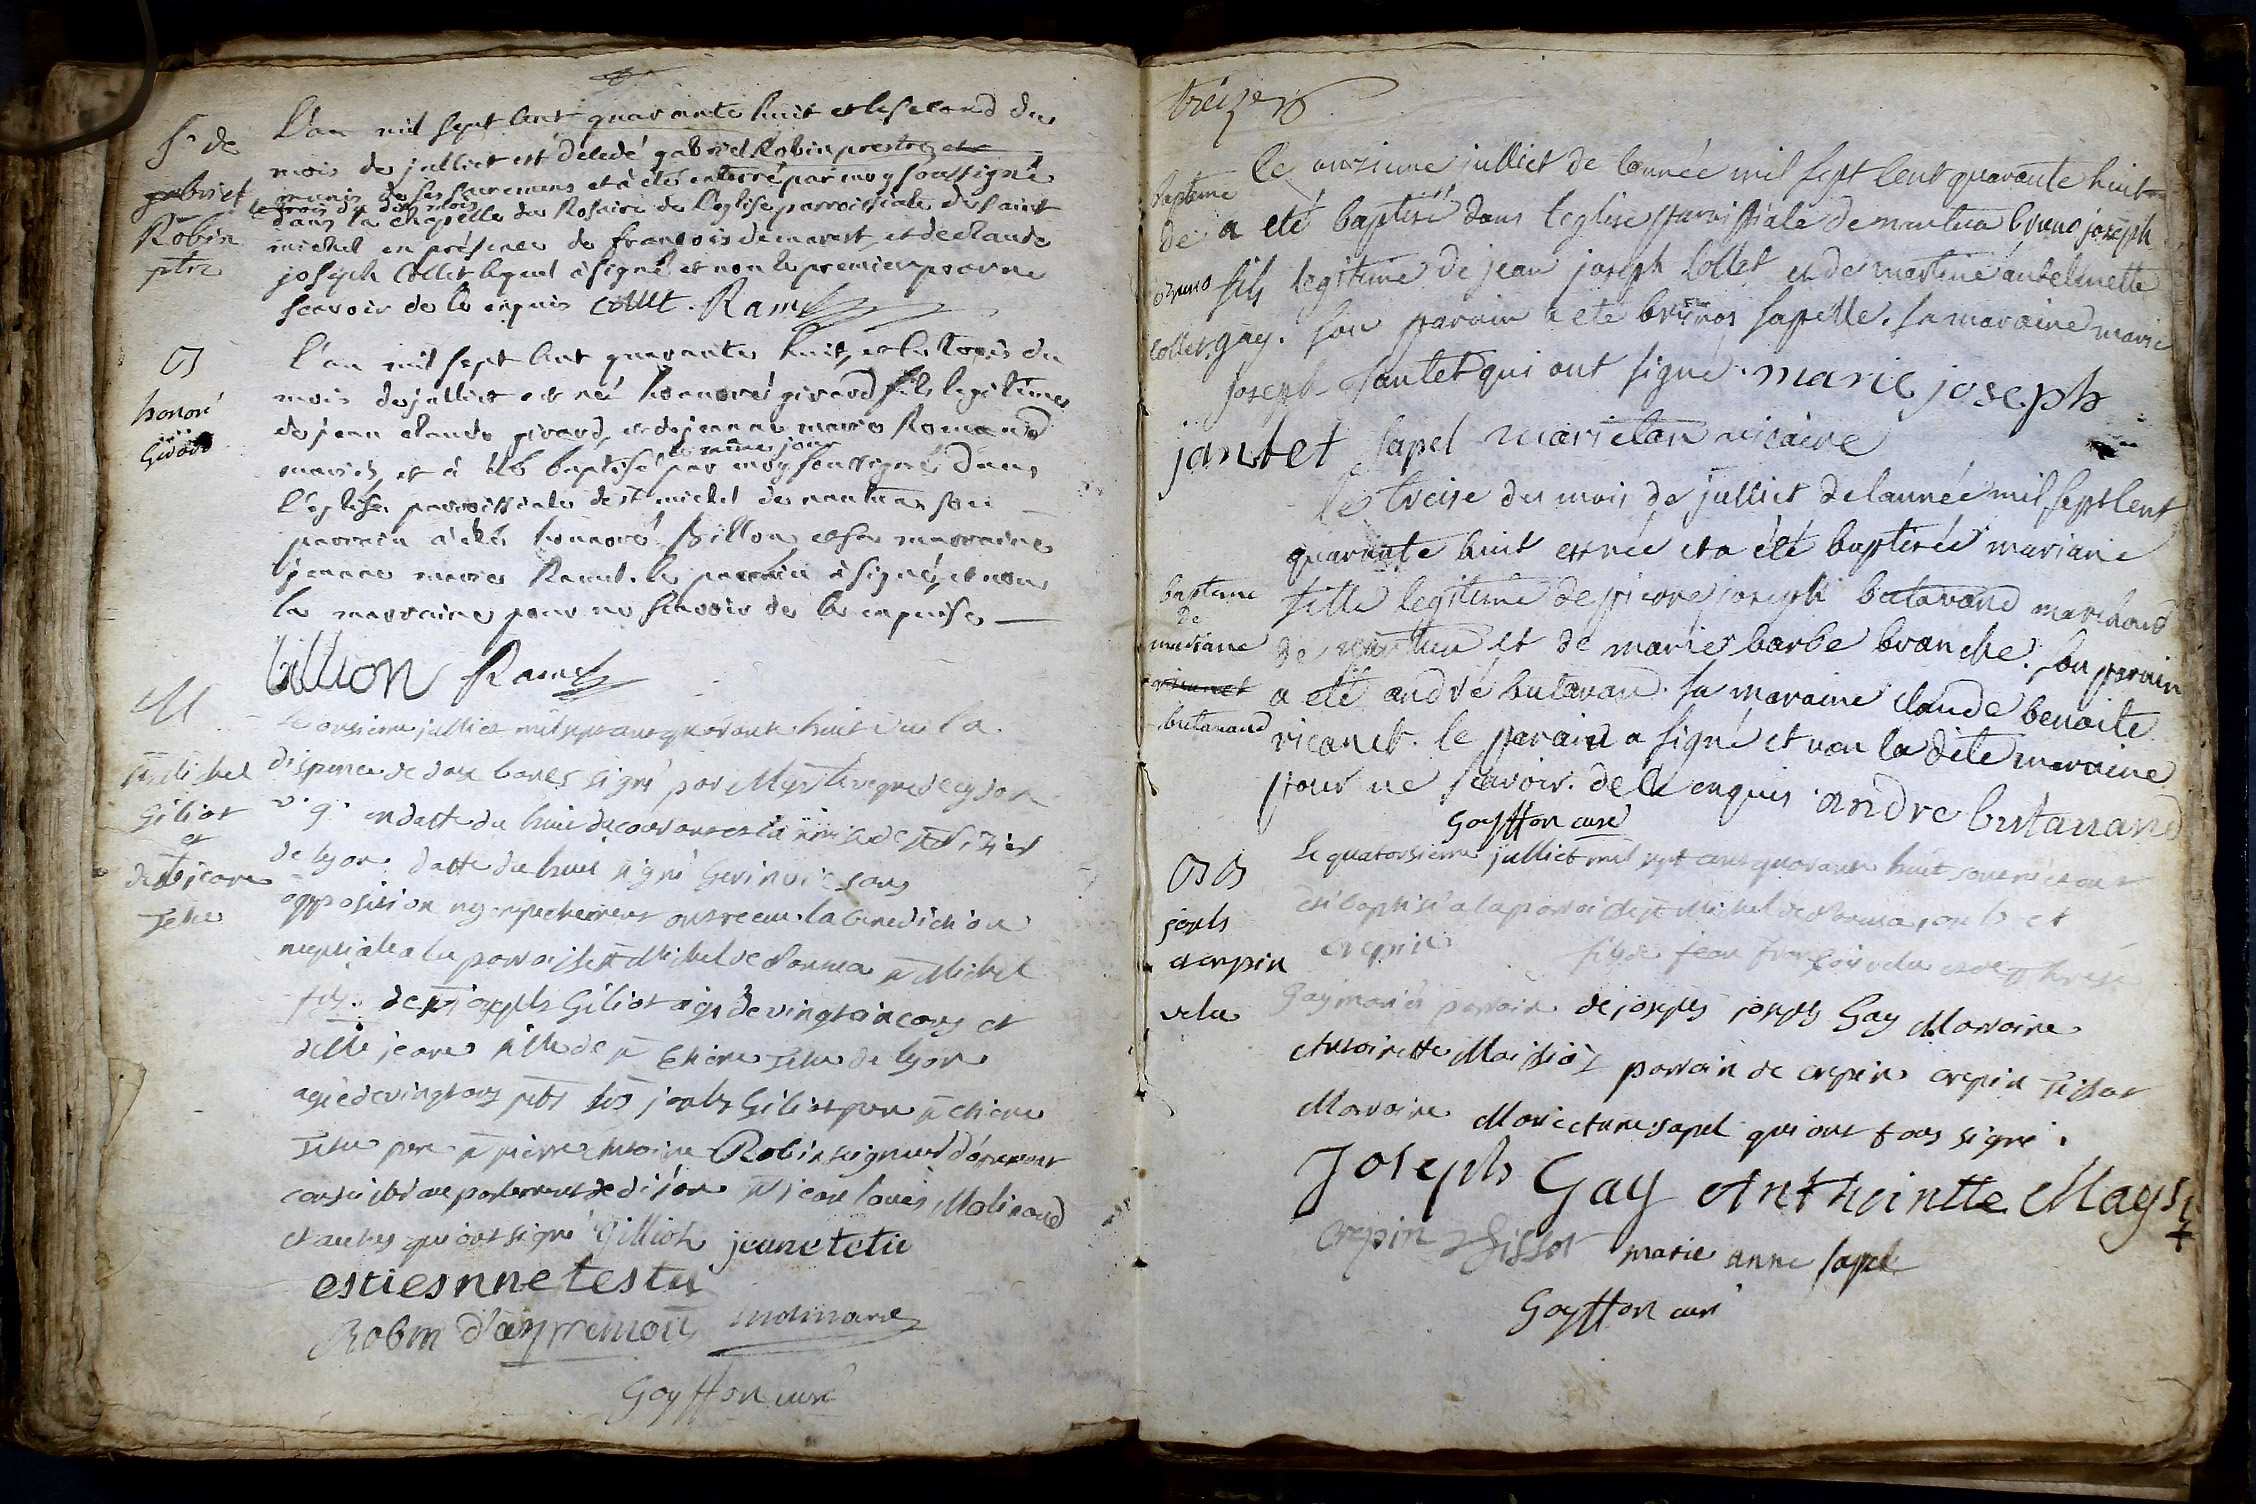 S. de
gabriel
Robin
ptre
L'an mil sept cent quarante huit et le second du
mois de julliet est décédé gabriel Robin prestre
munis de ses sacremens et à été enterré par moy soussigné
le trois du dit mois
dans la chapelle du Rosaire de l'église parroissiale de saint
michel en présence de françois demarest et de claude
joseph Collet lequel à signé et non le premier pour ne
scavoir de ce enquis Collet. Ramel
B
honoré
Girard
L'an mil sept cent quarante huit, et le trois du
mois de julliet est né honnoré girard fils legitime
de jean claude girard, et de jeanne marie Romand
le même jour
mariés, et à été baptisé par moy soussigné dans
l'église parroissiale de st michel de nantua son
parrain à été honnoré Billion et sa marraine
jeanne marie Ramel. le parrain à signé, et non
la marraine pour ne scavoir de ce enquise
billion Ramel
M
sr Michel
Giliot
et
jeane
Tetu
Le onsieme julliet mil sept cent quarante huit vu la
dispence de deux bancs signé par
v. g. en datte du huit du courant et la remise de
de lyon datte du huit signé sans
opposition ny empechement ont receu la benediction
nuptiale a la parroisse st Michel de Nantua sr Michel
fils de sr joseph Giliot agé de vingt cinq ans et
delle jeane fille de sr Etiene Tetu de lyon
agée de vingt ans pnts srs joseph Giliot pere sr etiene
Tetu pere sr pierre antoine Robin seigneur d'apremont
conseiller au parlement de dijon sr jean louis Molinard
et autres qui ont signé Gilliot jeane tetu
estiesnne testu
Robin d'aspremont molinard
Goyffon curé
treize
Baptême
de
bruno
collet
Le onzieme julliet de l'année mil sept cent quarante huit
a eté baptisé dans l'eglise parroissiale de nantua bruno joseph
fils legitime de jean joseph Collet et de martine antelmette
gay. son parain a eté brunos sapelle. sa maraine marie
joseph jantet qui ont signé. marie joseph
jantet sapel marietan vicaire
baptême
de
mariane
vicanet
butavand
Le treise du mois de julliet de l'année mil sept cent
quarante huit est née et a été baptisée mariane
fille legitime de pierre joseph butavand marchand
de nantua et de marie barbe branche. son parain
a eté andré butavan. sa maraine claude benoite
vicanet. le parain a signé et non la dite maraine
pour ne scavoir. de ce enquis andre butavand
Goyffon curé
BB
joseph
et crepin
velu
Le quatorsieme julliet mil sept cent quarante huit sont nés et ont
eté baptisé a la parroisse st Michel de Nantua joseph et
crepin fils de jean françois velu et de therese
gay mariés parrain de joseph joseph Gay Marraine
Antoinette parrain de crepin crepin Tissot
Marraine Marie Anne Sapel qui ont tous signé.
Joseph Gay Anthointte Mayss
crepin Tissot marie anne sapel
Goyffon curé